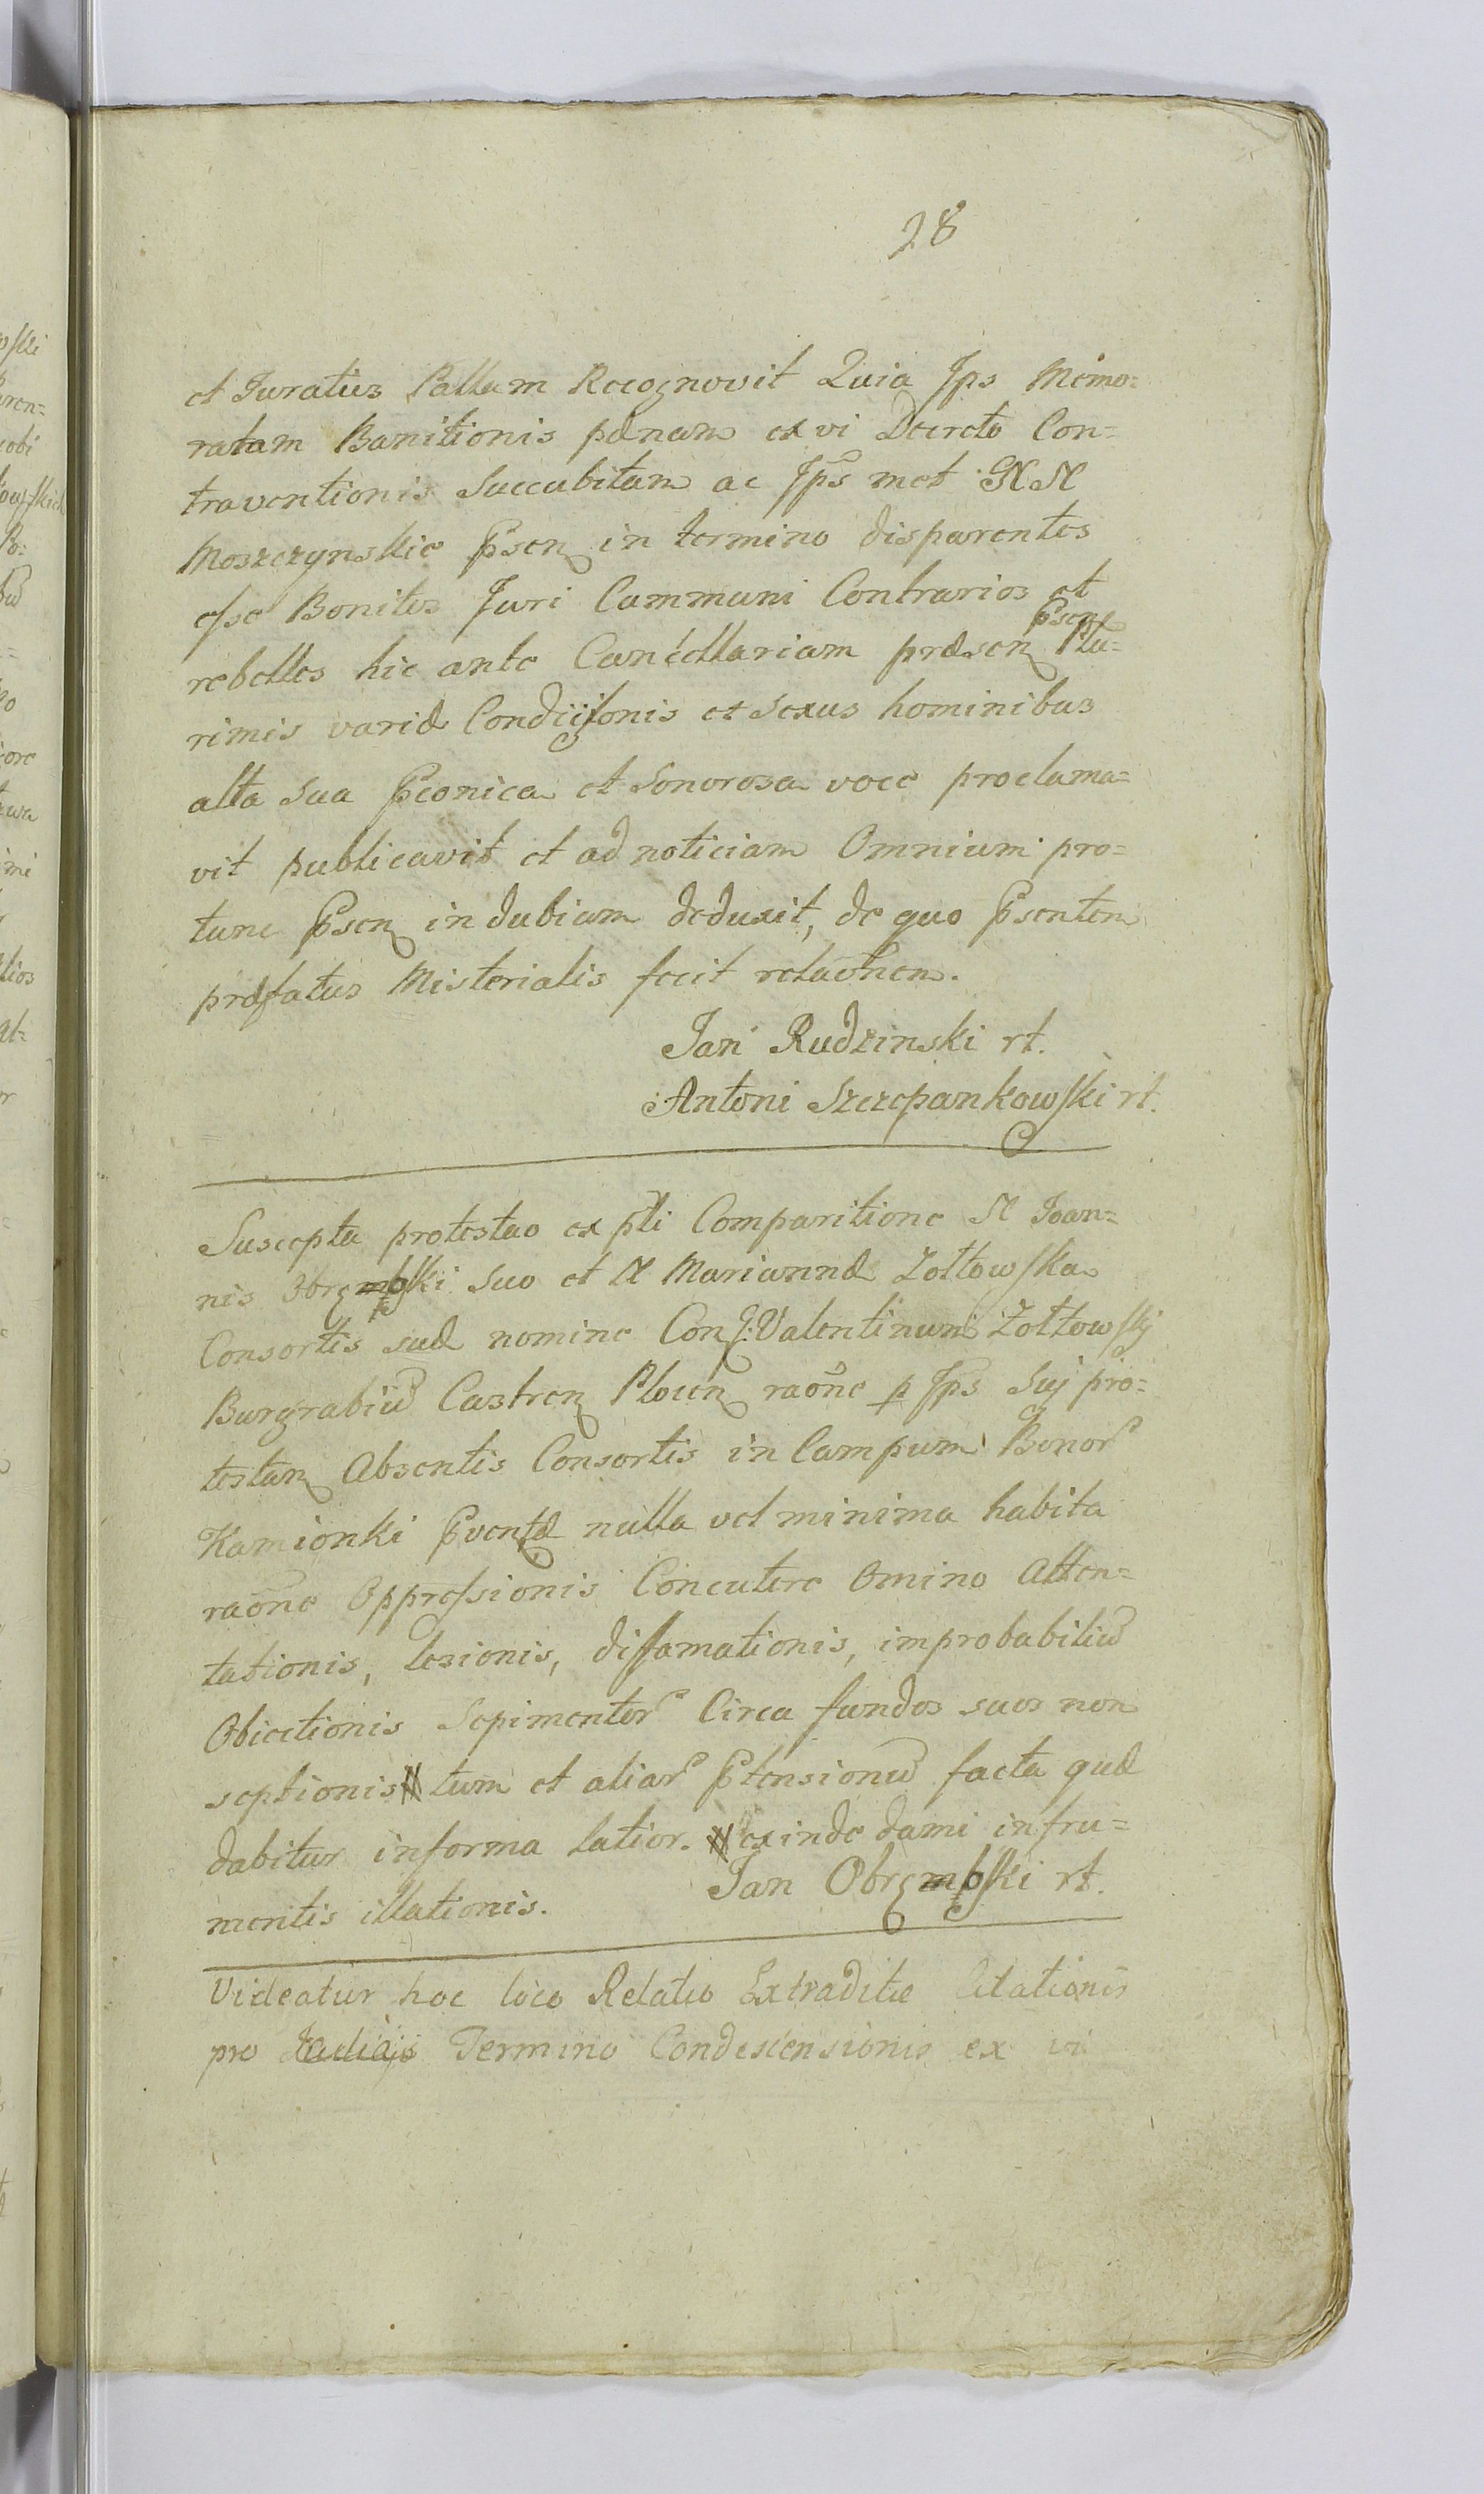 28
et Juratus Pallam Recognovit Quia Jps Memo=
ratam Banitionis pænam ex vi Decreto Con=
traventionis Succubitam ac Jps met GN N
Moszczynskie Psen in termino disparentes
esse Bonitos Juri Communi Contrarios et
rebelles hic ante Cancellariam præsen Psen Plu=
rimis variæ Condiisonis et sexus hominibus
alta sua Pconica et Sonorosa voce proclama=
vit publicavit et ad noticiam Omnium pro=
tunc Psen in dubiam deduxit, de quo Psentem
præfatus Misterialis fecit relaõnem.
Jan Rudzinski rt.
Antoni Szczepankowski rt.
Suscepta protestao ex pti Comparitione N Joan=
nis Obrembski suo et N Mariannæ Zoltowska
Consortis suæ nomine Con: Valentinum Zołtowskj
Burgrabiũ Castren Plocen raõne p Jps Suj pro=
testan Absentis Consortis in Campum Bonor
Kamionki Pventæ nulla vel minima habita
raõne Oppressionis Concutere Omino Atten=
tationis, lesionis, diffamationis, improbabiliũ
Obiectionis Sepimentor Circa fundos suos non
septionis # tum et aliar Ptensionũ facta quæ
dabitur in forma latior. # exinde dami in fru=
mentis illationis.
Jan Obrembski rt.
Videatur hoc loco Relatio Extraditæ Citationis
pro Termino Condescensionis ex vi